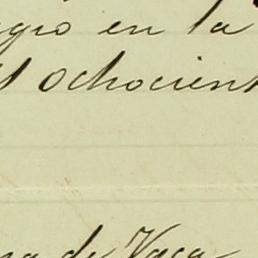 en la
Ochocient
de Vaca